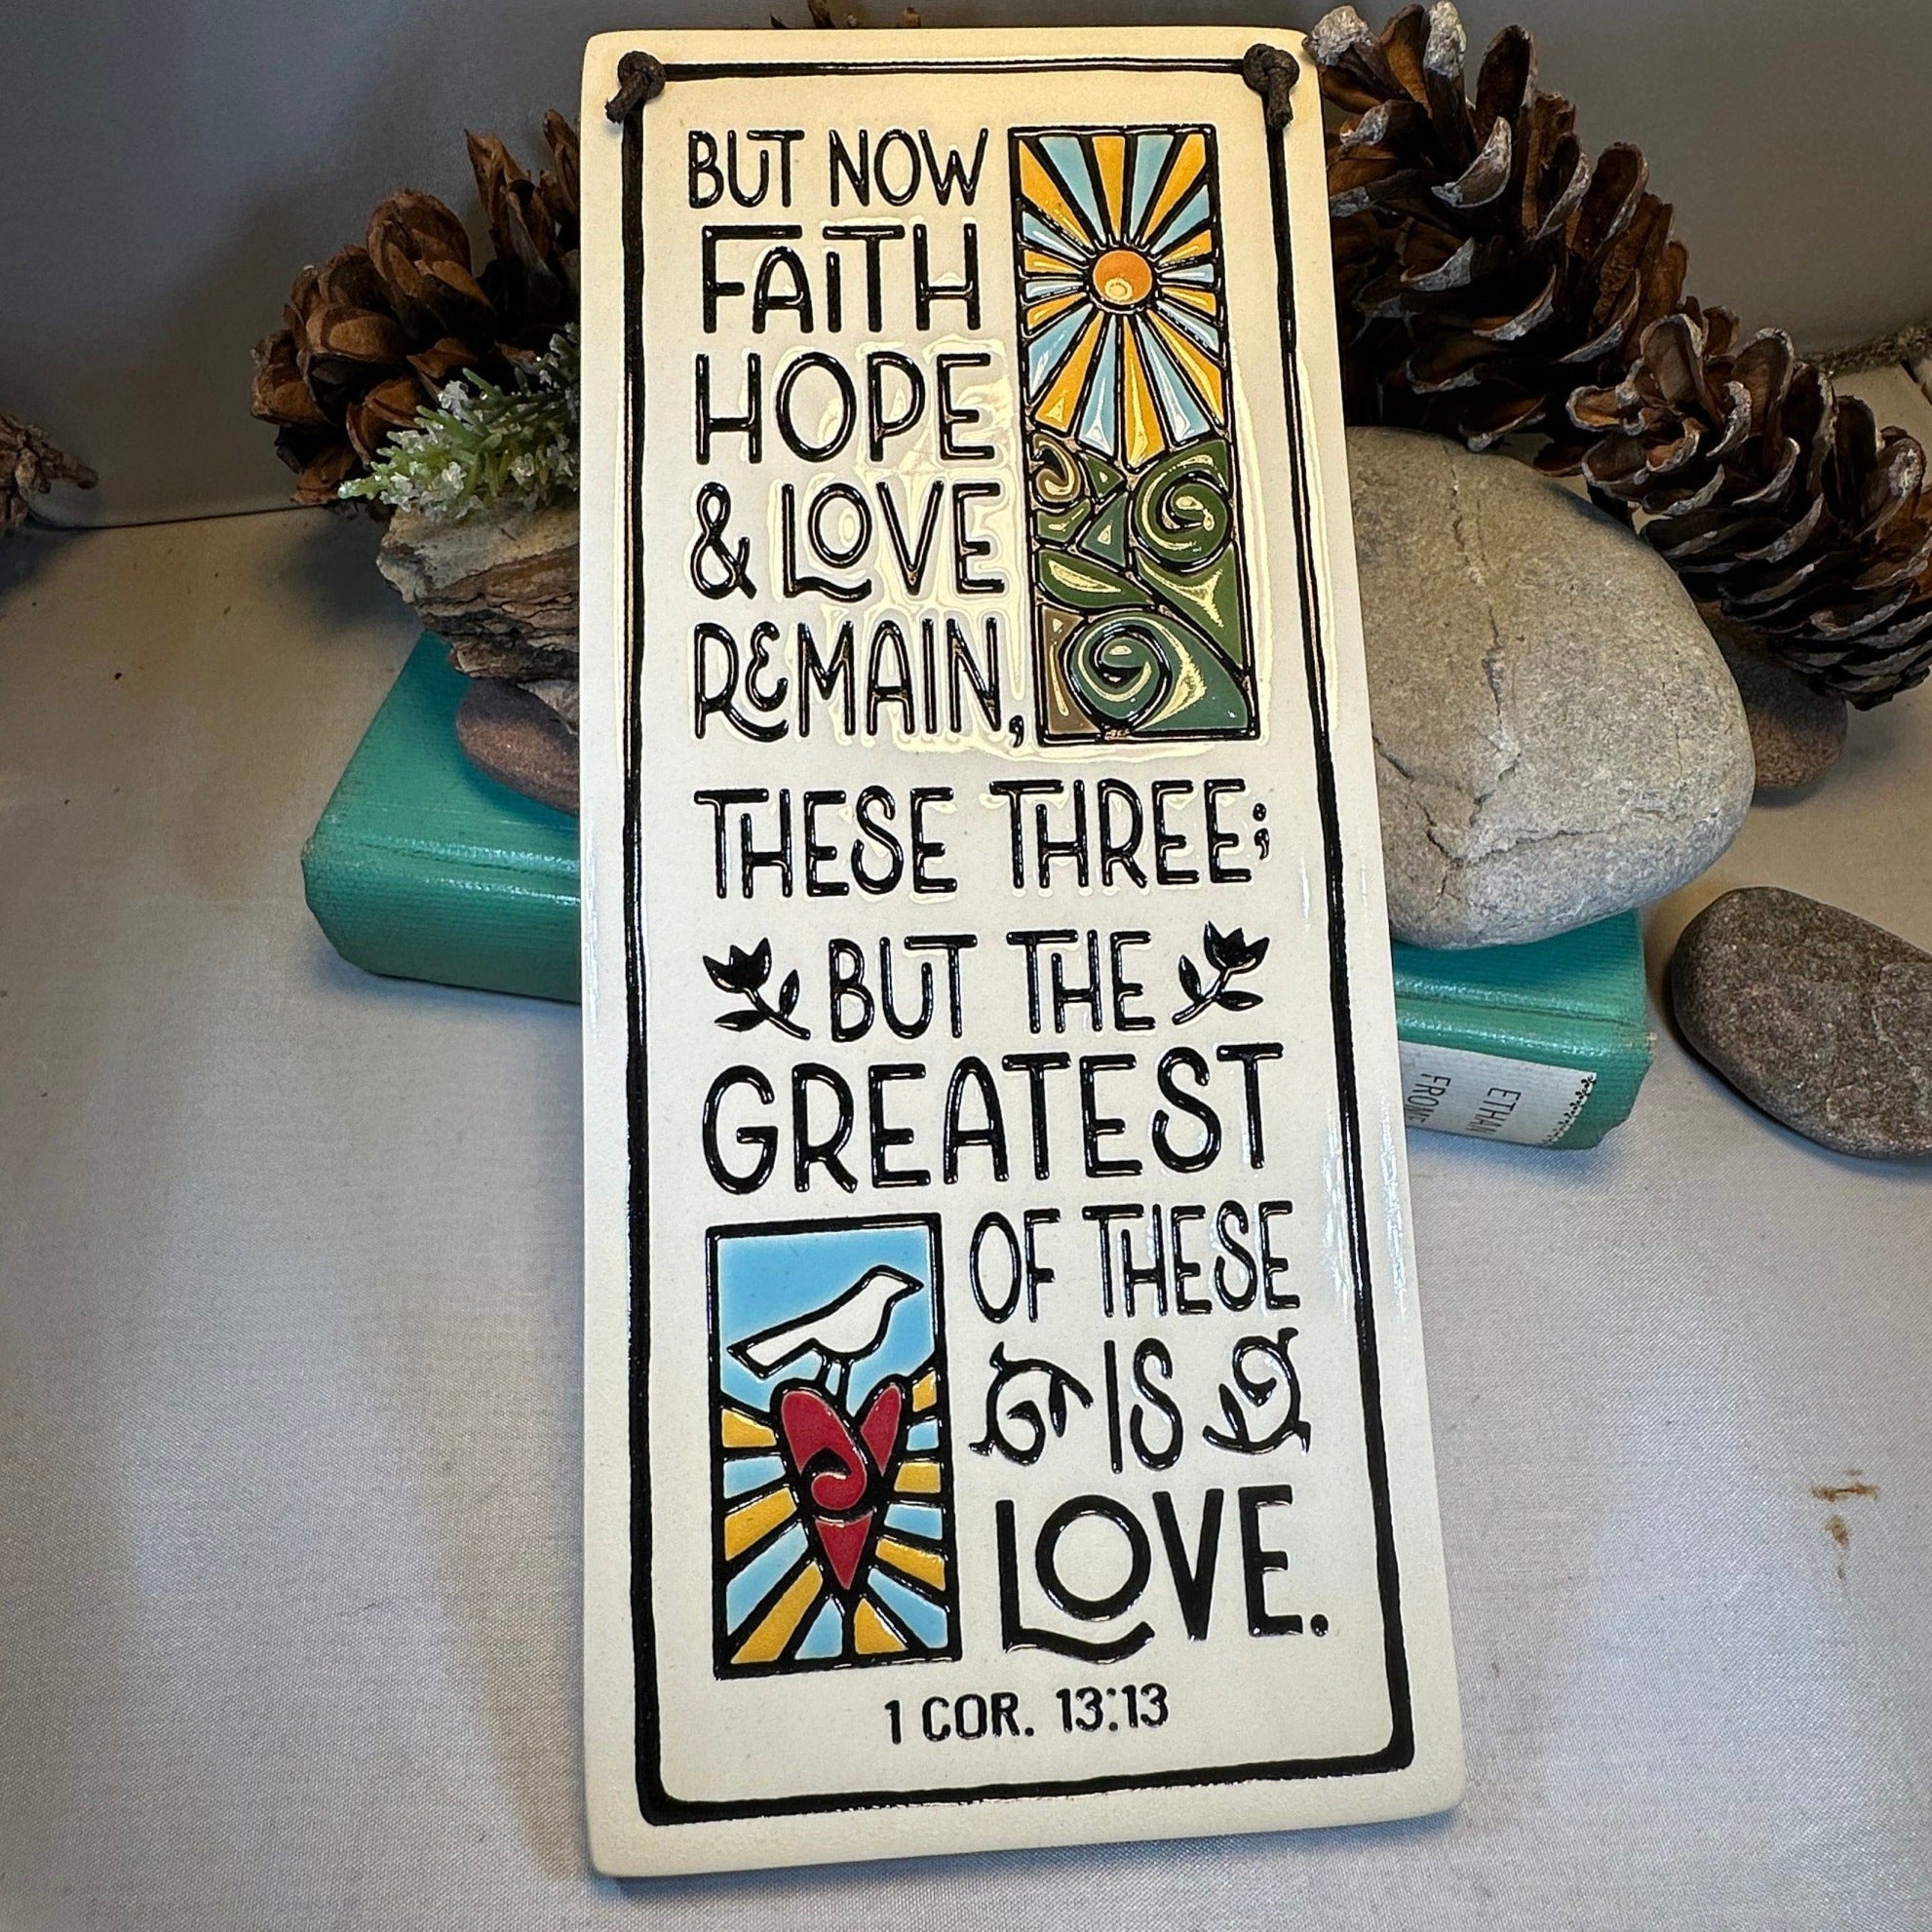 BUT NOW
FAITH
HOPE
& LOVE
REMAIN,
THESE THREE;
BUT THE
GREATEST
OF THESE
IS
LOVE.
1 COR. 13:13
ETHAN
FROME